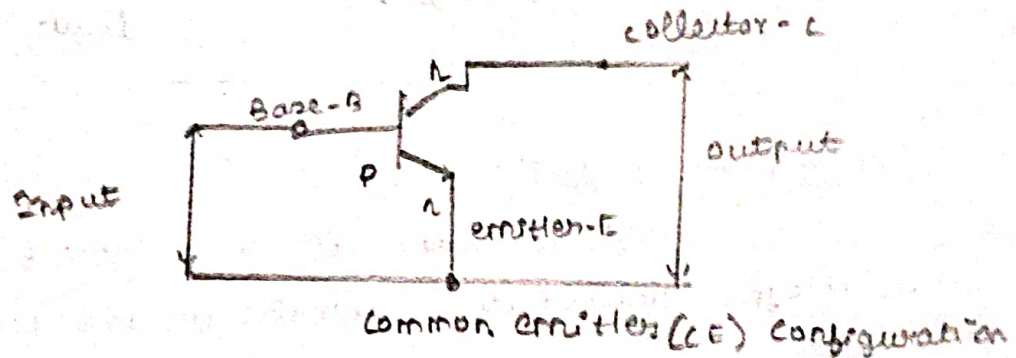 collector - C
n
Base - B
output
P
Input
n
emitter - E
Common emitter (CE) configuration